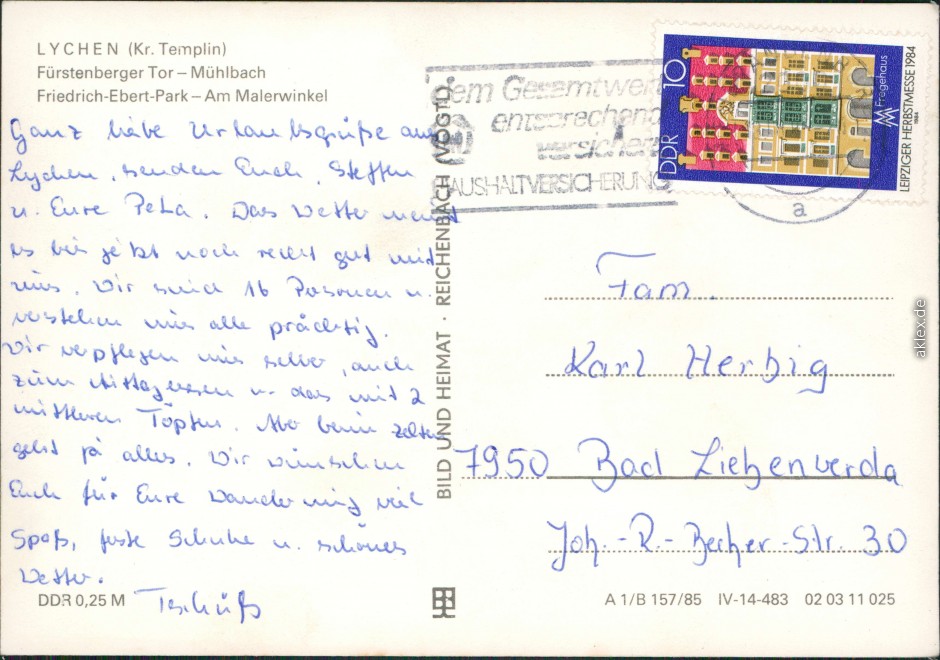 LYCHEN (Kr. Templin)
Fürstenberger Tor – Mühlbach
Friedrich-Ebert-Park – Am Malerwinkel
Ganz liebe Urlaubsgrüße aus
Lychen, senden Euch, Steffen
u. Eure Peta. Das Wetter meint
es bis jetzt noch recht gut mit
uns. Wir sind 16 Personen u.
verstehen uns alle prächtig.
Wir verpflegen uns selber, auch
zum Mittagessen u. das mit 2
mittleren Töpfen. Aber beim zelten
geht ja alles. Wir wünschen
Euch für Eure Wanderung viel
Spaß, feste Schuhe u. schönes
Wetter.
Tschüß
DDR 0,25 M
BILD UND HEIMAT · REICHENBACH (VOGTL)
dem Gesamtwert
entsprechend
versichert
HAUSHALTVERSICHERUNG
a
DDR 10
Fregehaus
MM
LEIPZIGER HERBSTMESSE 1984
1984
Fam.
Karl Herbig
7950 Bad Liebenwerda
Joh.-R.-Becher-Str. 30
A 1/B 157/85 IV-14-483 02 03 11 025
aklex.de